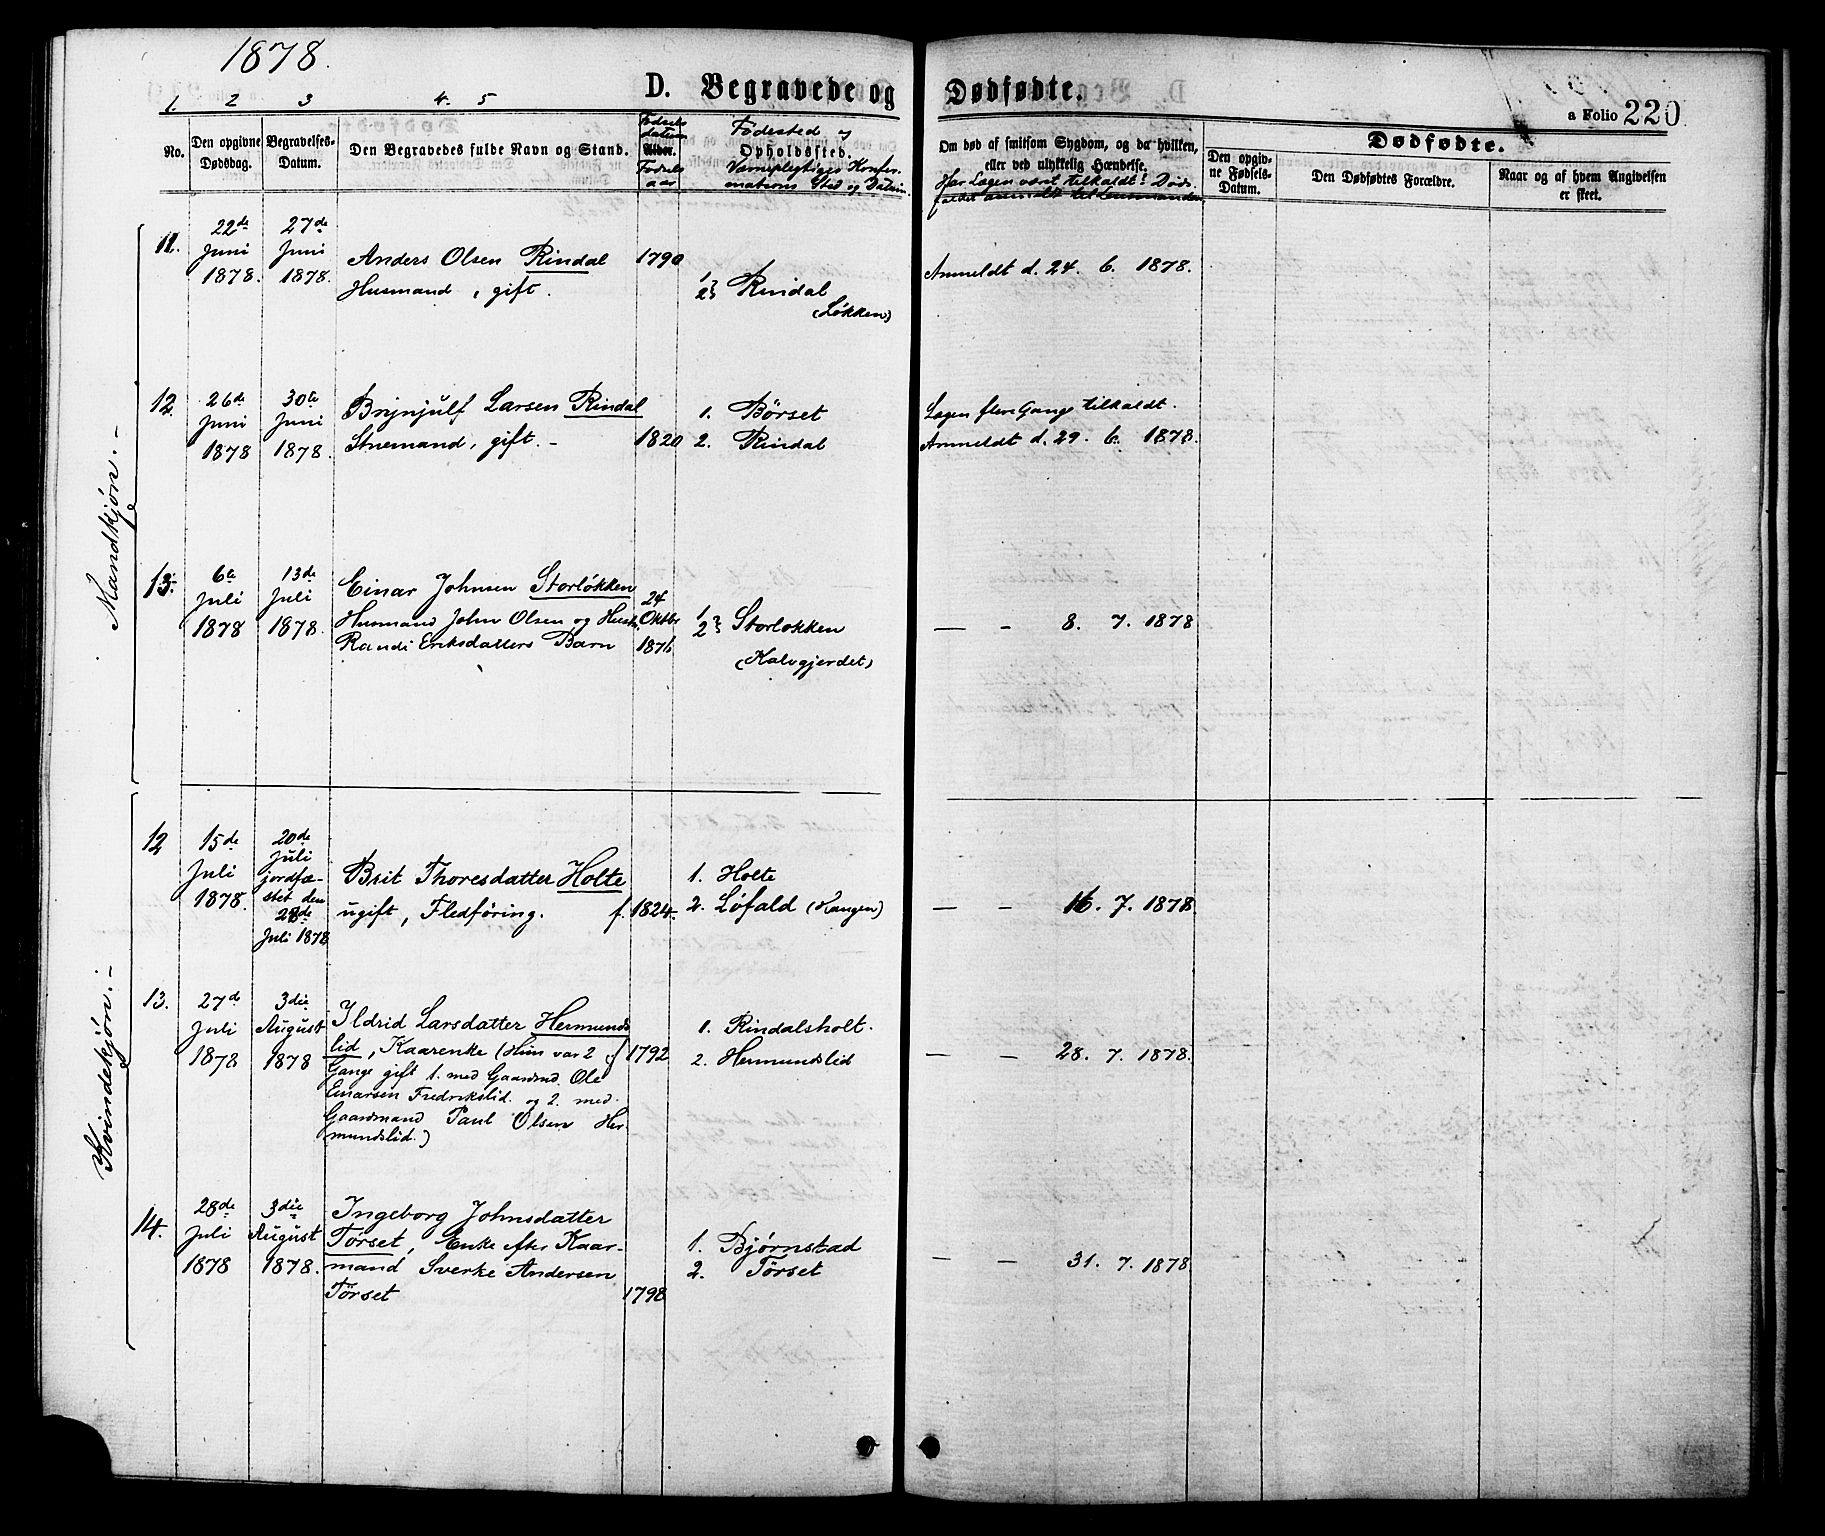 1878.
D. Begravede og Dødfødte.
a Folio 220.
1. 2 3 4. 5
No.
Den opgivne Dødsdag.
Begravelses-Datum.
Den Begravedes fulde Navn og Stand.
Fødsels datum
Alder.
Fødsels aar
Fødested og
Opholdssted.
Værnepligtiges Konfir-
mations Sted og Datum.
Om død af smitsom Sygdom, og da hvilken,
eller ved ulykkelig Hændelse.
Har Lægen været tilkaldt? Døds-
faldet anmeldt til Lensmanden
Dødfødte.
Den opgiv-
ne Fødsels-
Datum.
Den Dødfødtes Forældre.
Naar og af hvem Angivelsen
er skeet.
Mandkjøn. -
11.
22de
Juni
1878.
27de
Juni
1878.
Anders Olsen Rindal
Husmand, gift.
1790
1
2} Rindal
(Løkken)
Anmeldt d. 24. 6. 1878.
12.
26de
Juni
1878
30te
Juni
1878.
Brynjulf Larsen Rindal
gift. -
1820
1. Börset
2. Rindal
Lægen flere Gange tilkaldt.
Anmeldt d. 29. 6. 1878.
13.
6te
Juli
1878
13de
Juli
1878.
Einar Johnsen Storløkken
Husmand John Olsen og Hustr.
Randi Eriksdatters Barn
24
Oktbr
1876
1
2} Storløkken
(Kalvgjerdet)
— - 8. 7. 1878
Kvindekjön. -
12
15de
Juli
1878.
20de
Juli
jordfæ-
stet den
28de
Juli 1878
Brit Thoresdatter Holte
ugift, Fledføring.
f. 1824.
1. Holte
2. Løfald (Haugen)
— - 16. 7. 1878
13.
27de
Juli
1878
3die
August
1878
Ildrid Larsdatter Hermunds
lid, Kaarenke (Hun var 2
Gange gift 1. med Gaardmd. Ole
Einarsen Fredrikslid. og 2. med
Gaardmand Paul Olsen Her-
mundslid.)
1792
1. Rindalsholt.
2. Hermundslid
— - 28. 7. 1878.
14.
28de
Juli
1878
3die
August
1878.
Ingeborg Johnsdatter
Tørset, Enke efter Kaar-
mand Sverke Andersen
Tørset
1798
1. Bjørnstad
2. Tørset
— - 31. 7. 1878